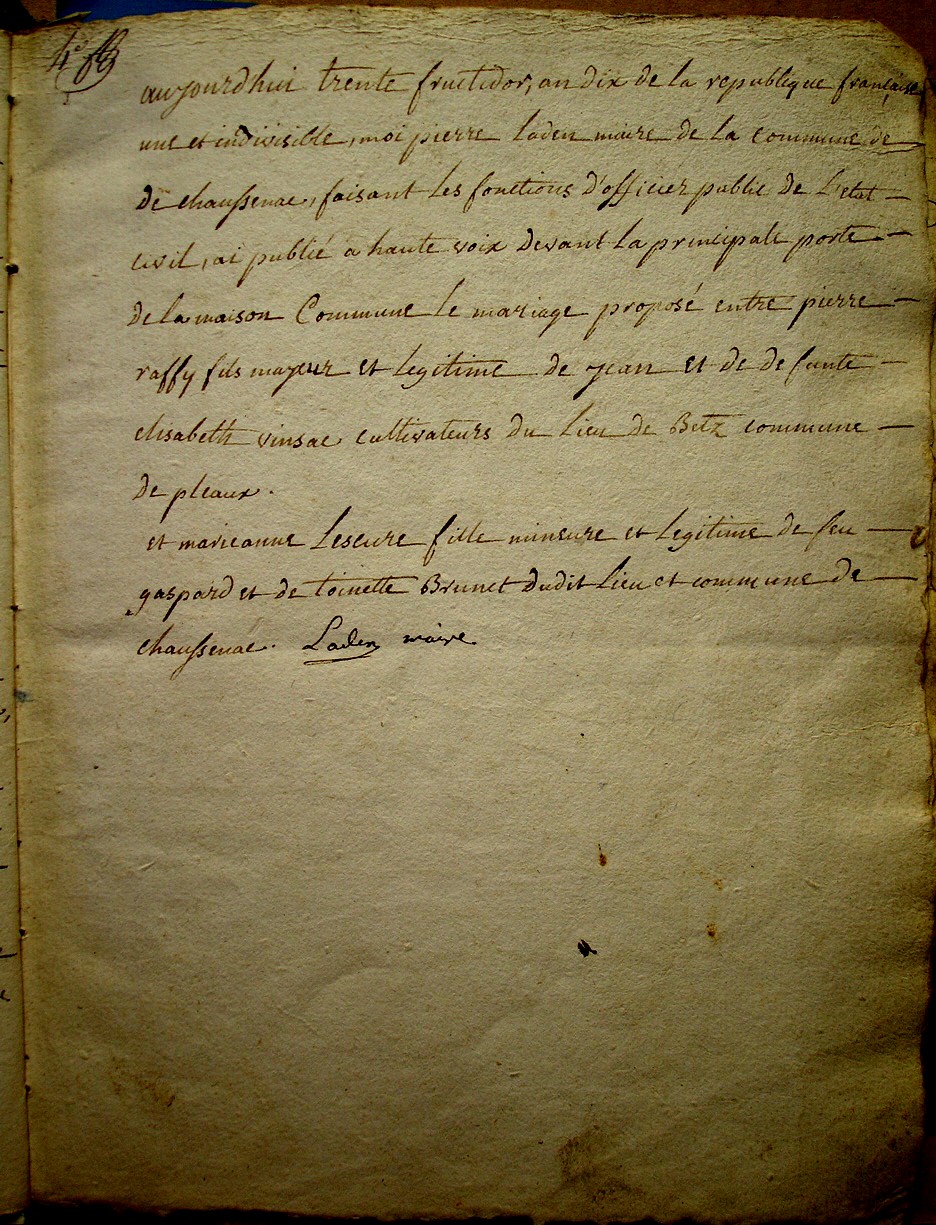 4e
aujourdhui trente fructidor, an dix de la republique française
une et indivisible, moi pierre laden maire de la commune de
de chaussenac, faisant les fonctions d'officier public de L'etat —
civil, ai publié a haute voix devant la principale porte —
de la maison Commune le mariage proposé entre pierre —
raffy fils mayeur et legitime de jean et de defunte —
elisabeth vinsac cultivateurs du lieu de Betz commune —
de pleaux.
et marieanne Lescure fille mineure et legitime de feu —
gaspard et de toinette Brunet dudit lieu et commune de —
chaussenac. Laden maire